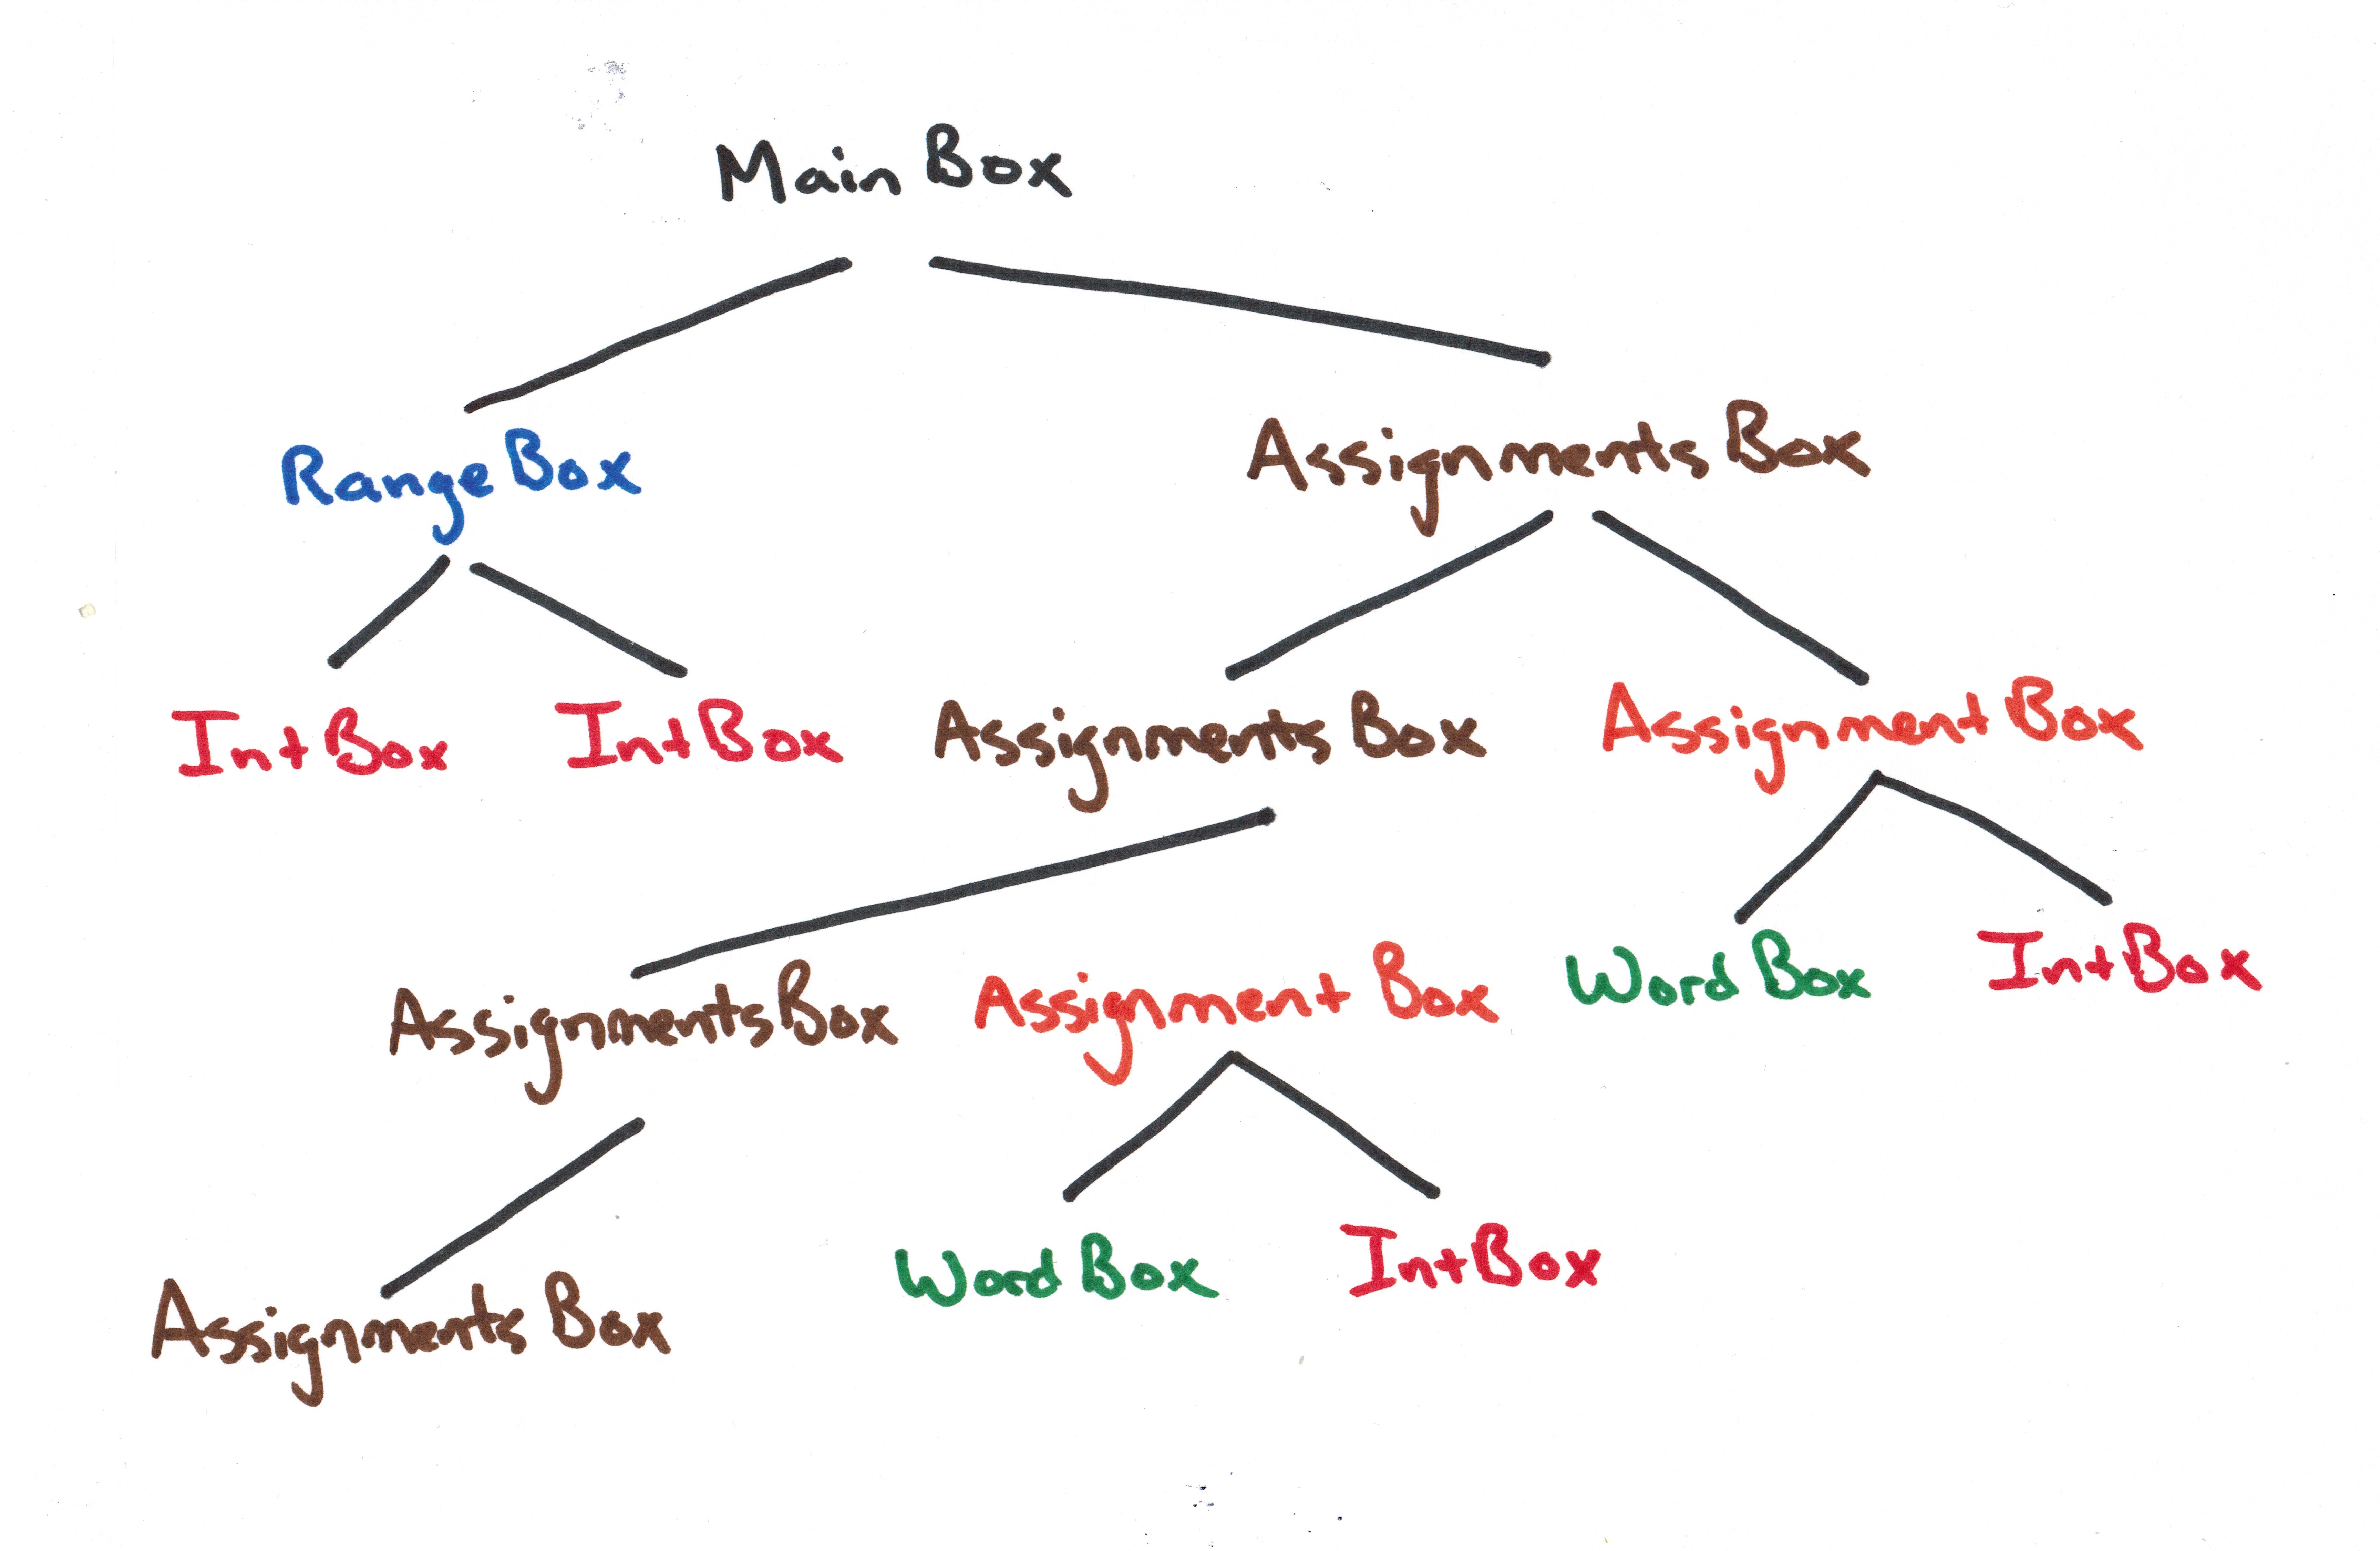 MainBox
RangeBox AssignmentsBox
IntBox IntBox AssignmentsBox AssignmentBox
AssignmentsBox AssignmentBox WordBox IntBox
AssignmentsBox WordBox IntBox